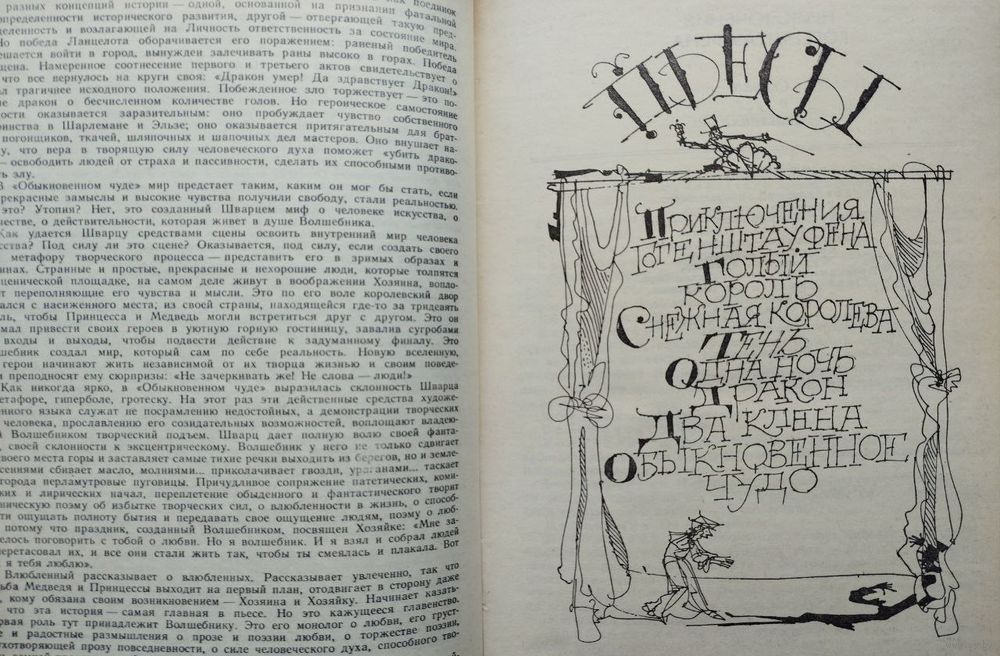 разных концепций истории — одной, основанной на признании фатальной
определенности исторического развития, другой — отвергающей такую пред-
деленность и возлагающей на Личность ответственность за состояние мира.
Но победа Ланцелота оборачивается его поражением: раненый победитель
ешается войти в город, вынужден залечивать раны высоко в горах. Победа
щена. Намеренное соотнесение первого и третьего актов свидетельствует о
что все вернулось на круги своя: «Дракон умер! Да здравствует Дракон!»
ал трагичнее исходного положения. Побежденное зло торжествует — это по-
не дракон о бесчисленном количестве голов. Но героическое самостояние
ности оказывается заразительным: оно пробуждает чувство собственного
оинства в Шарлемане и Эльзе; оно оказывается притягательным для брат-
погонщиков, ткачей, шляпочных и шапочных дел мастеров. Оно внушает на-
у, что вера в творящую силу человеческого духа поможет «убить драко-
— освободить людей от страха и пассивности, сделать их способными противо-
ть злу.
В «Обыкновенном чуде» мир предстает таким, каким он мог бы стать, если
рекрасные замыслы и высокие чувства получили свободу, стали реальностью.
это? Утопия? Нет, это созданный Шварцем миф о человеке искусства, о
честве, о действительности, которая живет в душе Волшебника.
Как удается Шварцу средствами сцены освоить внутренний мир человека
сства? Под силу ли это сцене? Оказывается, под силу, если создать своего
метафору творческого процесса — представить его в зримых образах и
инах. Странные и простые, прекрасные и нехорошие люди, которые толпятся
ценической площадке, на самом деле живут в воображении Хозяина, вопло-
т переполняющие его чувства и мысли. Это по его воле королевский двор
ался с насиженного места; из своей страны, находящейся где-то за тридевять
ль, чтобы Принцесса и Медведь могли встретиться друг с другом. Это он
мал привести своих героев в уютную горную гостиницу, завалив сугробами
входы и выходы, чтобы подвести действие к задуманному финалу. Это
шебник создал мир, который сам по себе реальность. Новую вселенную,
герои начинают жить независимой от их творца жизнью и своим поведе-
преподносят ему сюрпризы: «Не зачеркивать же! Не слова — люди!»
Как никогда ярко, в «Обыкновенном чуде» выразилась склонность Шварца
етафоре, гиперболе, гротеску. На этот раз эти действенные средства художе-
енного языка служат не посрамлению недостойных, а демонстрации творческих
человека, прославлению его созидательных возможностей, воплощают владею-
Волшебником творческий подъем. Шварц дает полную волю своей фанта-
своей склонности к эксцентрическому. Волшебник у него не только сдвигает
воего места горы и заставляет самые тихие речки выходить из берегов, но и земле-
сениями сбивает масло, молниями... приколачивает гвозди, ураганами... таскает
города перламутровые пуговицы. Причудливое сопряжение патетических, коми-
ких и лирических начал, переплетение обыденного и фантастического творят
ническую поэму об избытке творческих сил, о влюбленности в жизнь, о способ-
ти ощущать полноту бытия и передавать свое ощущение людям, поэму о люб-
потому что праздник, созданный Волшебником, посвящен Хозяйке: «Мне за-
елось поговорить с тобой о любви. Но я волшебник. И я взял и собрал людей
еретасовал их, и все они стали жить так, чтобы ты смеялась и плакала. Вот
я тебя люблю».
Влюбленный рассказывает о влюбленных. Рассказывает увлеченно, так что
ьба Медведя и Принцессы выходит на первый план, отодвигает в сторону даже
кому обязана своим возникновением — Хозяина и Хозяйку. Начинает казать-
что эта история — самая главная в пьесе. Но это кажущееся главенство.
рвая роль тут принадлежит Волшебнику. Это его монолог о любви, его груст-
е и радостные размышления о прозе и поэзии любви, о торжестве поэзии,
ухотворяющей прозу повседневности, о силе человеческого духа, способного тво-
ПЬЕСЫ
ПРИКЛЮЧЕНИЯ
ГОГЕНШТАУФЕНА
ГОЛЫЙ
КОРОЛЬ
СНЕЖНАЯ КОРОЛЕВА
ТЕНЬ
ОДНА НОЧЬ
ДРАКОН
ДВА КЛЕНА
ОБЫКНОВЕННОЕ
ЧУДО